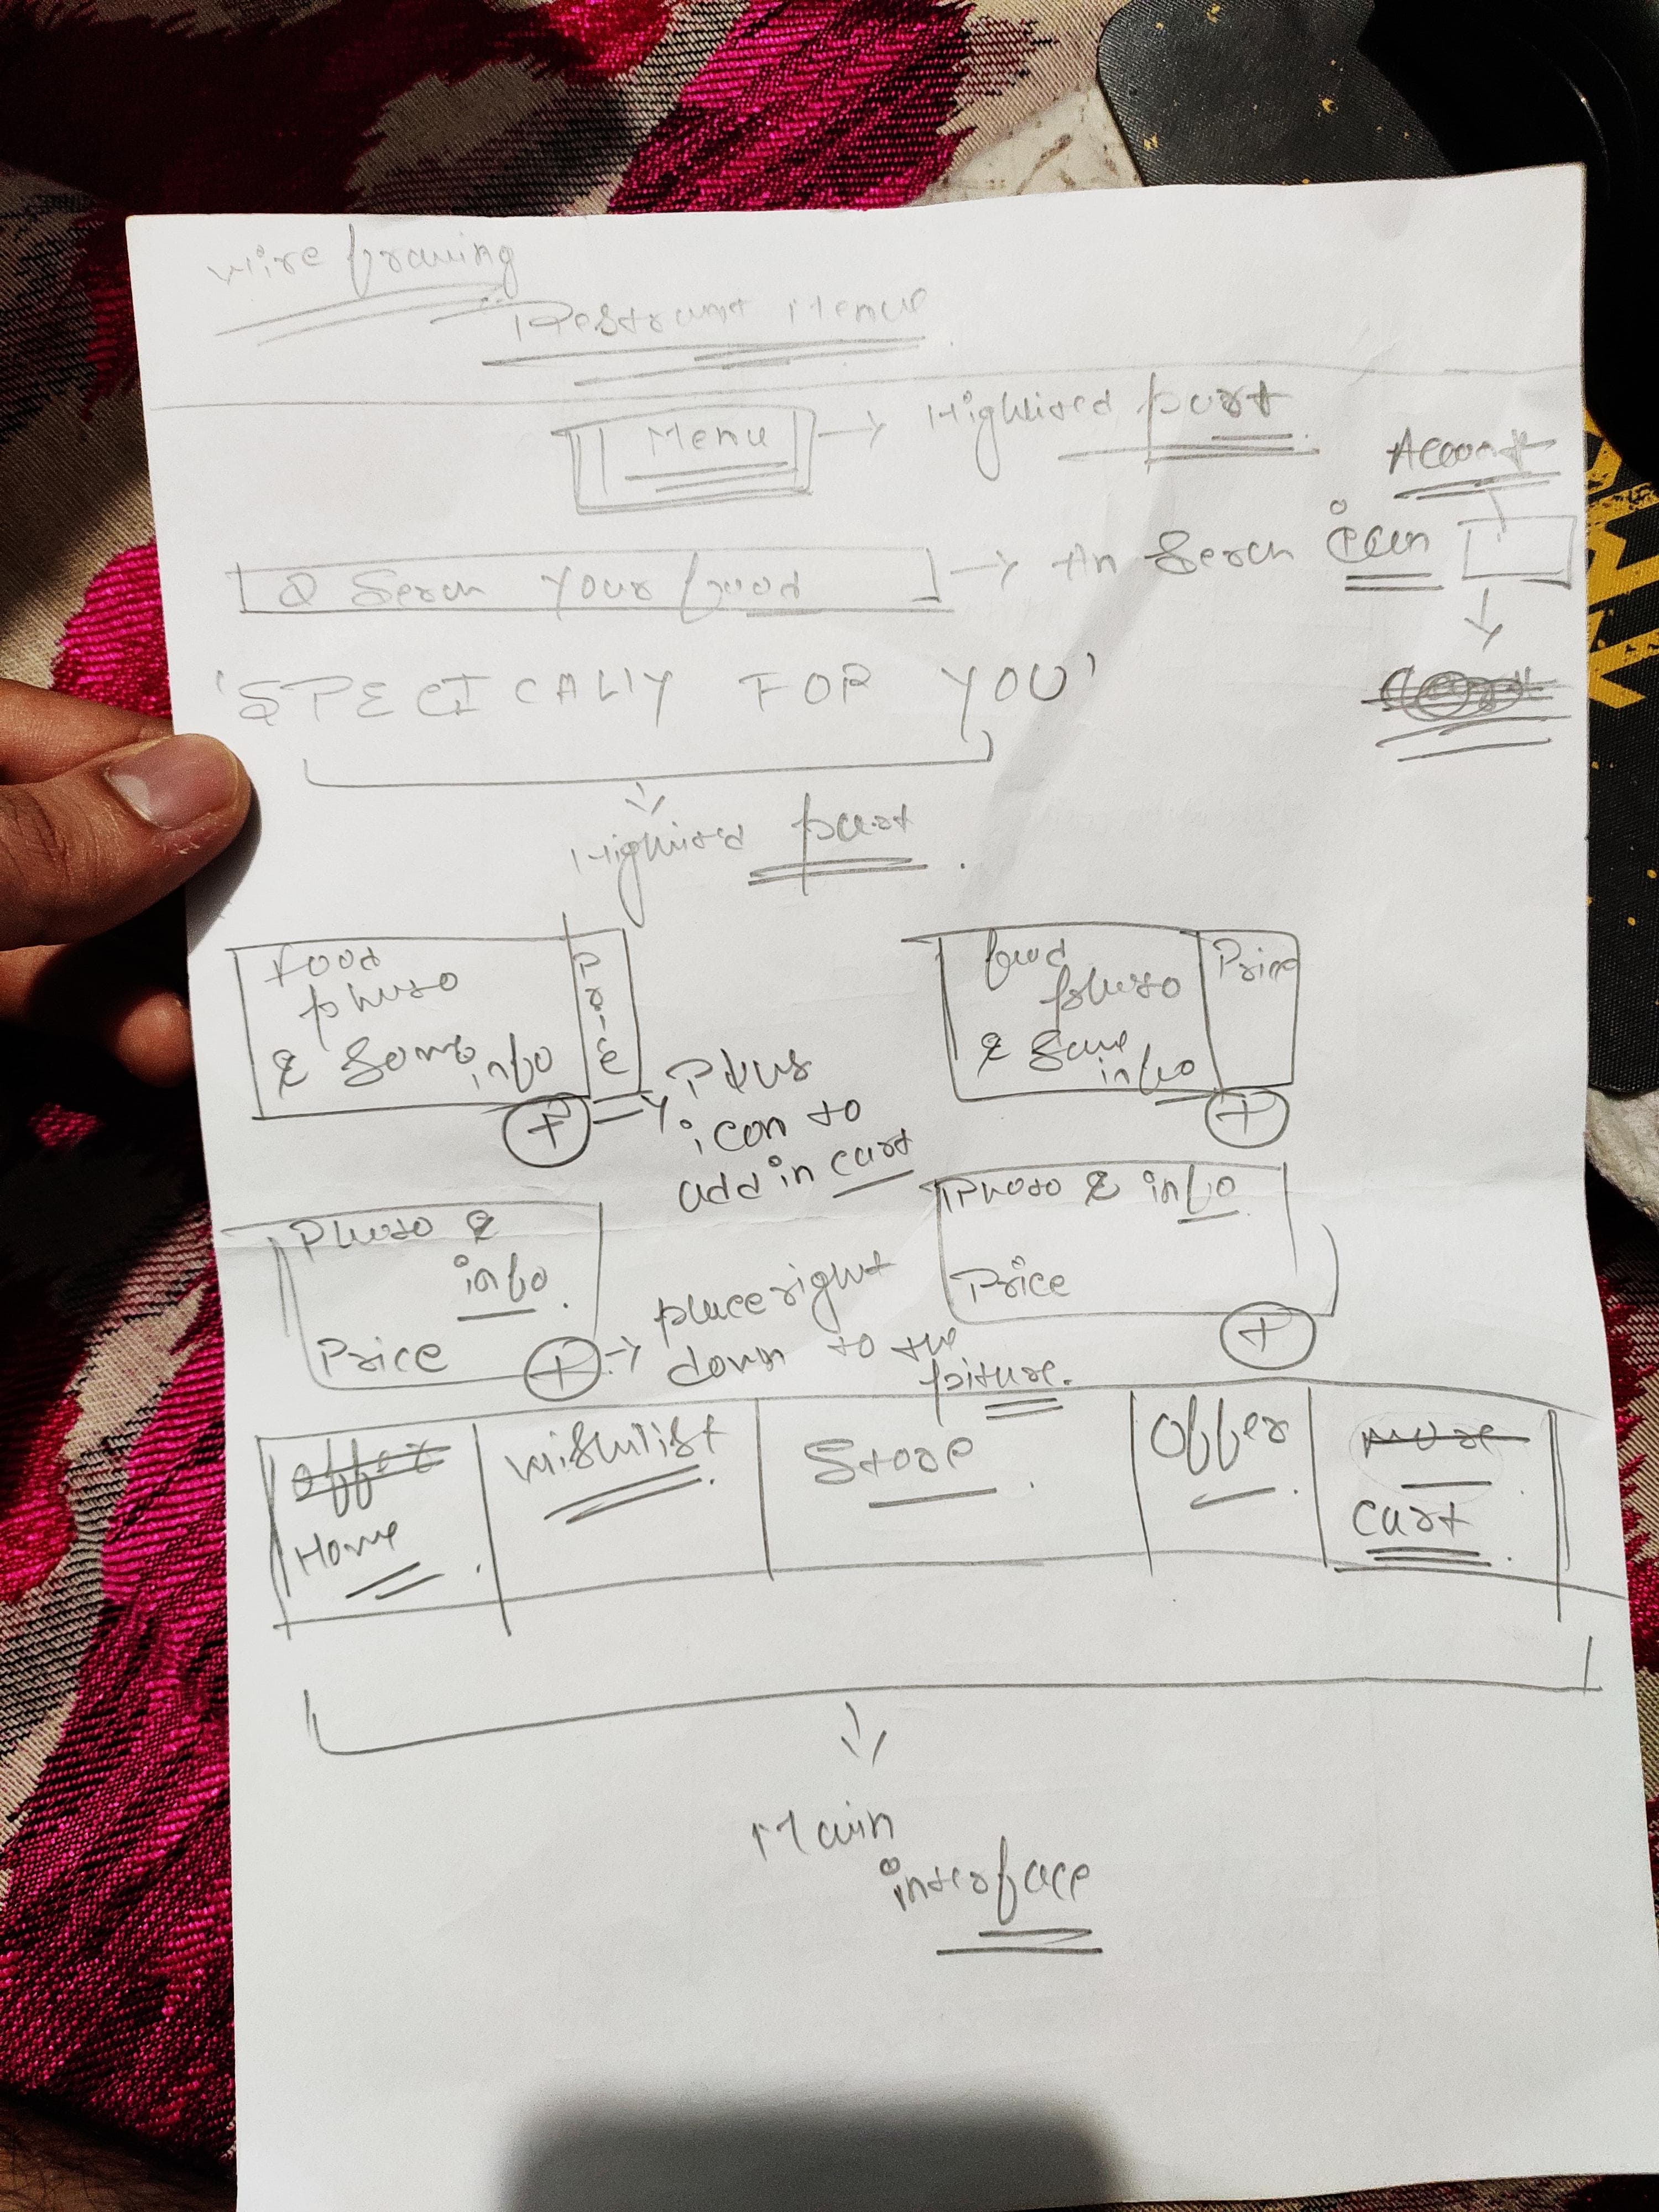 Wire framing
Restrunt Menue
Menu → Highlited part
Acount
Q Serch Your food → An Serch icon
'SPECICALLY FOR YOU'
Highlited part.
Food photo & Some info
Price
food photo & some info
Price
+ → Plus icon to add in cart
+
Photo & info.
Price
+ → place right down to the picture.
Photo & info
Price
+
Offer
Home.
Wishlist.
Store.
Offer.
more.
Cart.
Main
interface